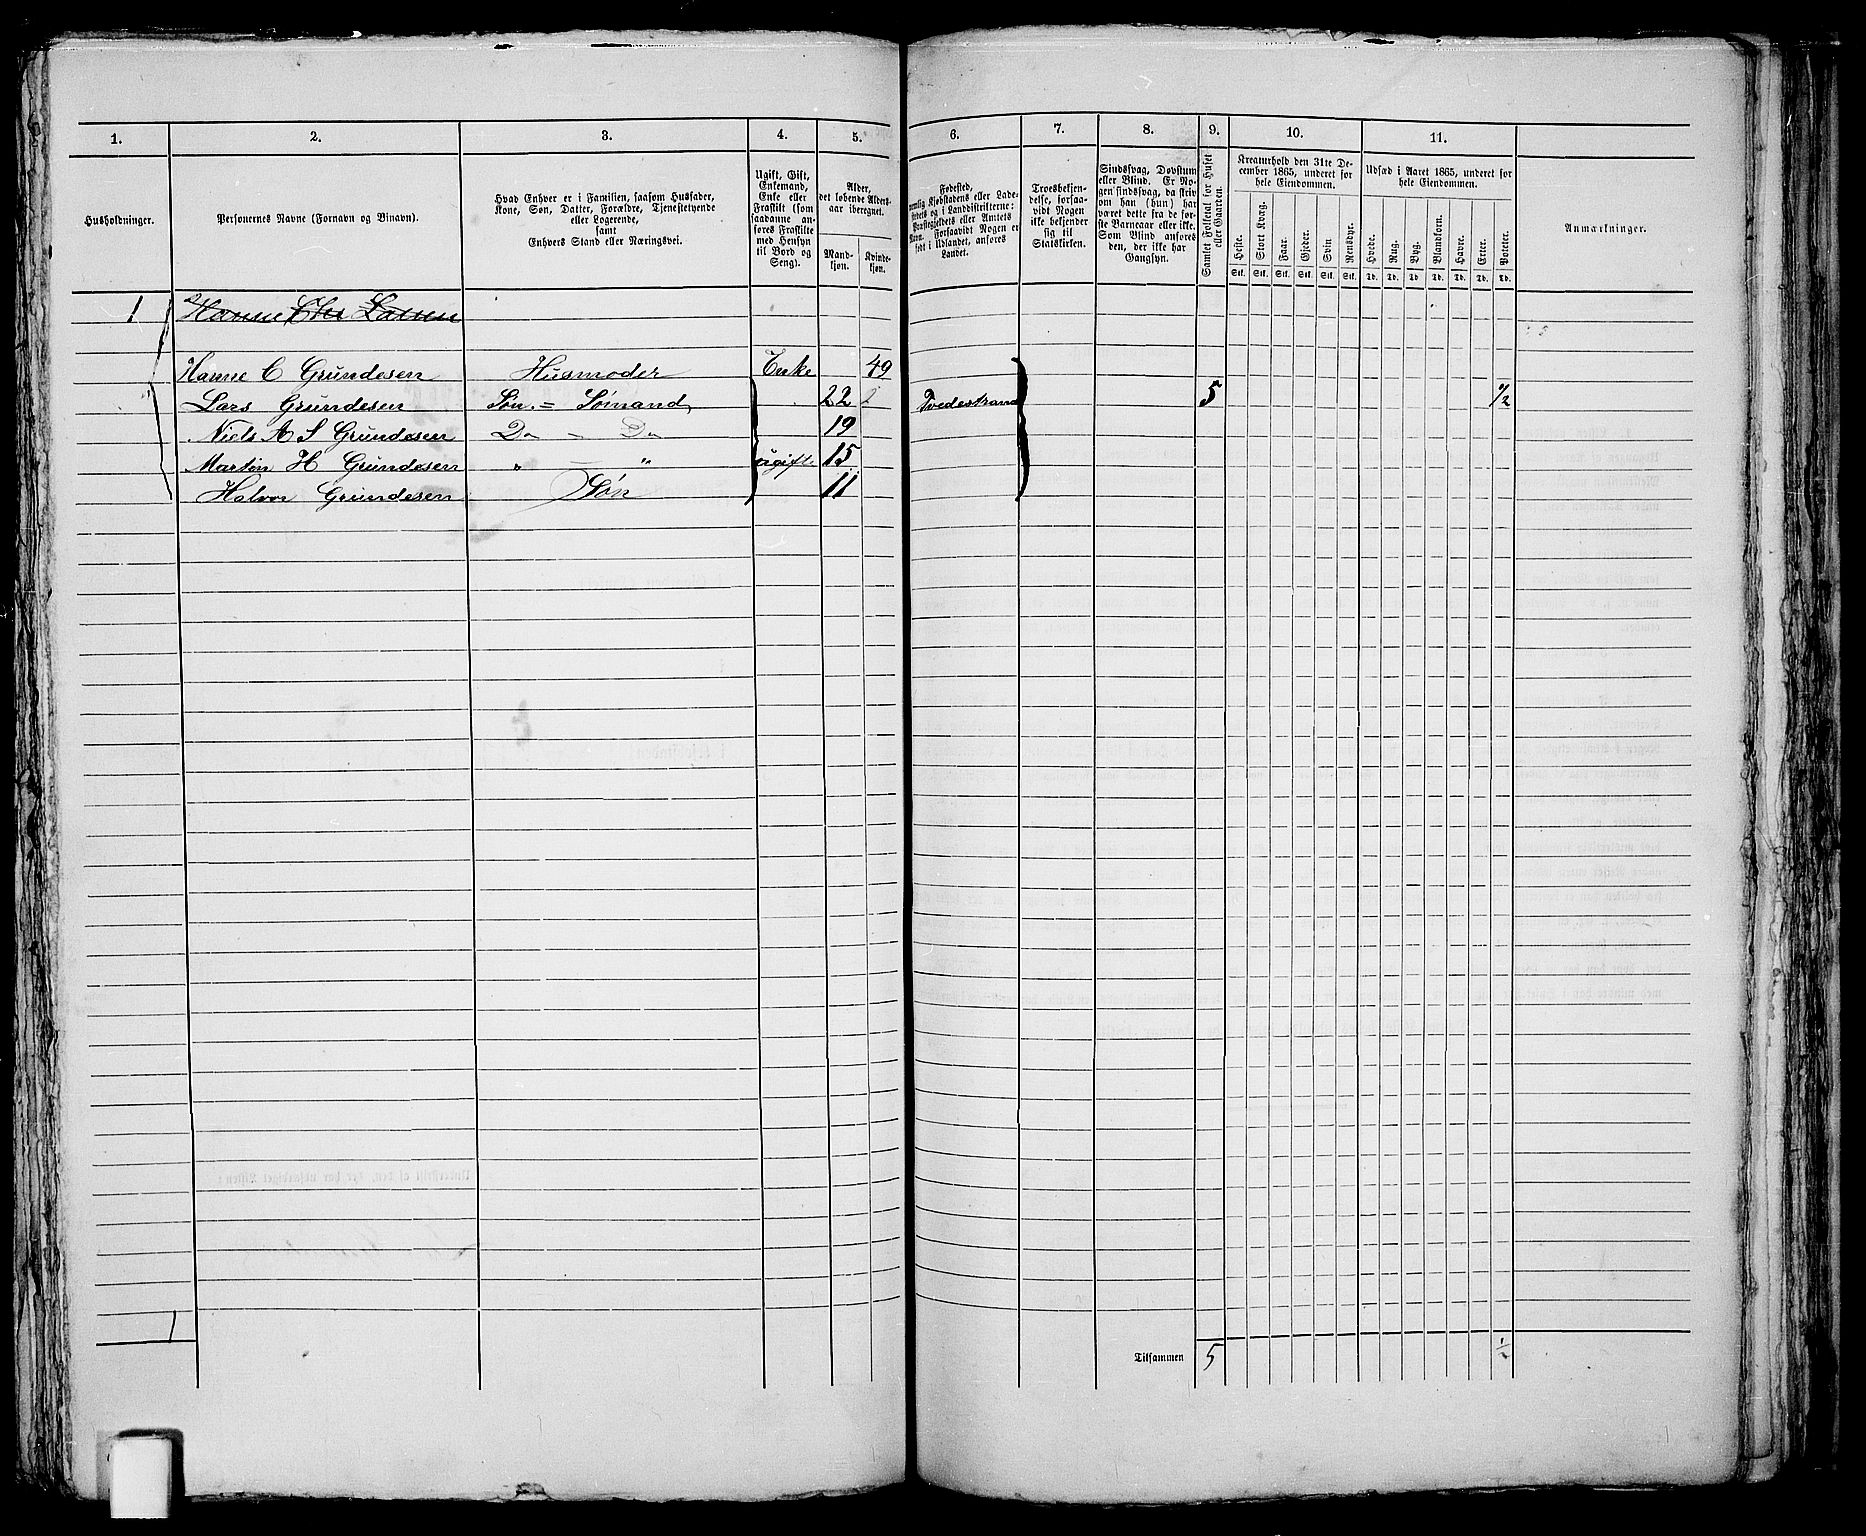 1. 2. 3. 4. 5. 6. 7. 8. 9. 10. 11.
Husholdninger.
Personernes Navne (Fornavn og Binavn).
Hvad Enhver er i Familien, saasom Husfader,
Kone, Søn, Datter, Forældre, Tjenestetyende
eller Logerende,
samt
Enhvers Stand eller Næringsvei.
Ugift, Gift,
Enkemand,
Enke eller
Fraskilt (som
saadanne an-
føres Fraskilte
med Hensyn
til Bord og
Seng).
Alder,
det løbende Alders-
aar iberegnet.
Mand-
kjøn.
Kvinde-
kjøn.
Fødested,
nemlig Kjøbstadens eller Lade-
stedets og i Landdistrikterne:
Præstegjeldets eller Amtets
Navn. Forsaavidt Nogen er
født i Udlandet, anføres
Landet.
Troesbekjen-
delse, forsaa-
vidt Nogen
ikke bekjender
sig til
Statskirken.
Sindssvag, Døvstum
eller Blind. Er No-
gen sindssvag, da skriv
om han (hun) har
været dette fra de før-
ste Barneaar eller ikke.
Som Blind anføres
den, der ikke har
Gangsyn.
Samlet Folketal for Huset
eller Gaarden.
Kreaturhold den 31te De-
cember 1865, underet for
hele Eiendommen.
Heste. Stort Kvæg. Faar. Gjeder. Svin Rensdyr.
Stk. Stk. Stk. Stk. Stk. Stk.
Udsæd i Aaret 1865, underet for
hele Eiendommen.
Hvede. Rug. Byg. Blandkorn. Havre. Erter. Poteter.
Td. Td. Td. Td. Td. Td. Td.
Anmærkninger.
1 Hanne Chr Larsen
Hanne C Grundesen Husmoder Enke 49
Lars Grundesen Søn = Sømand 22 Tvedestrand 5 1/2
Niels A S Grundesen Do – Do 19
Martin H Grundesen " – " ugift 15
Halvor Grundesen Søn 11
1
Tilsammen 5 1/2